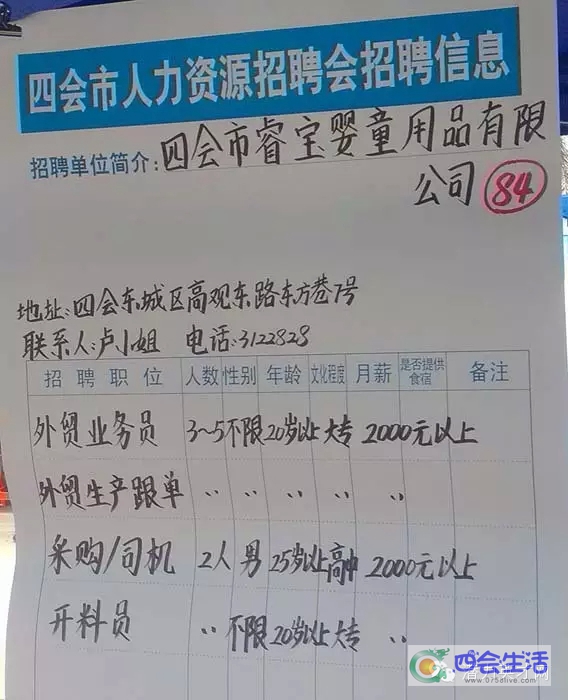 四会市人力资源招聘会招聘信息
招聘单位简介:四会市睿宝婴童用品有限
公司 84
地址:四会东城区高观东路东方巷7号
联系人:卢小姐 电话:3122828
招聘职位 人数 性别 年龄 文化程度 月薪 是否提供食宿 备注
外贸业务员 3~5 不限 20岁以上 大专 2000元以上
外贸生产跟单 〃 〃 〃 〃 〃
采购/司机 2人 男 25岁以上 高中 2000元以上
开料员 〃 不限 20岁以上 大专 〃
四会生活
www.075alive.cn